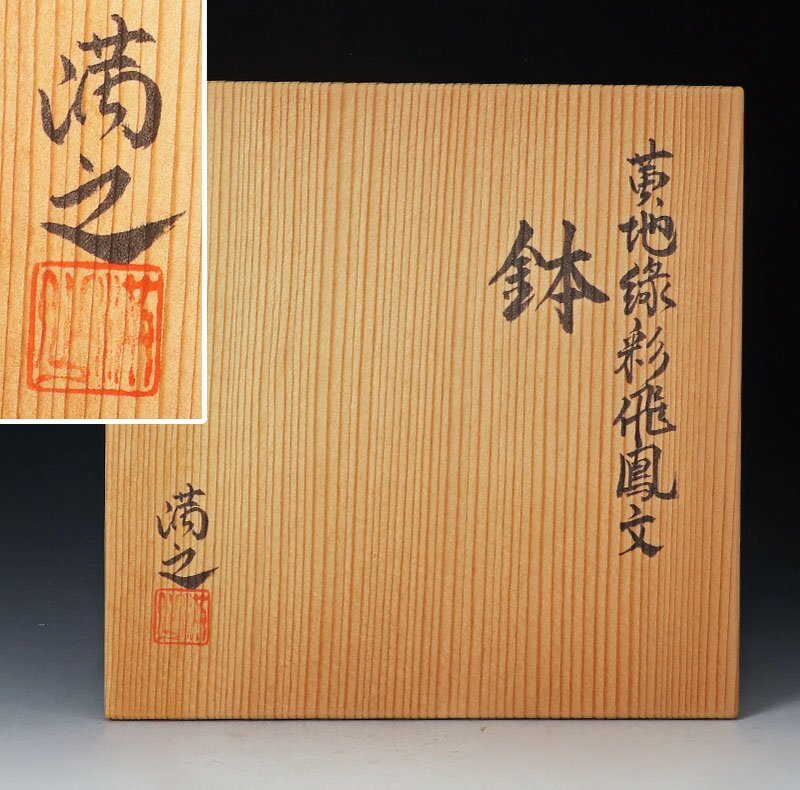 黄地緑彩飛鳳文
鉢
満之
満之